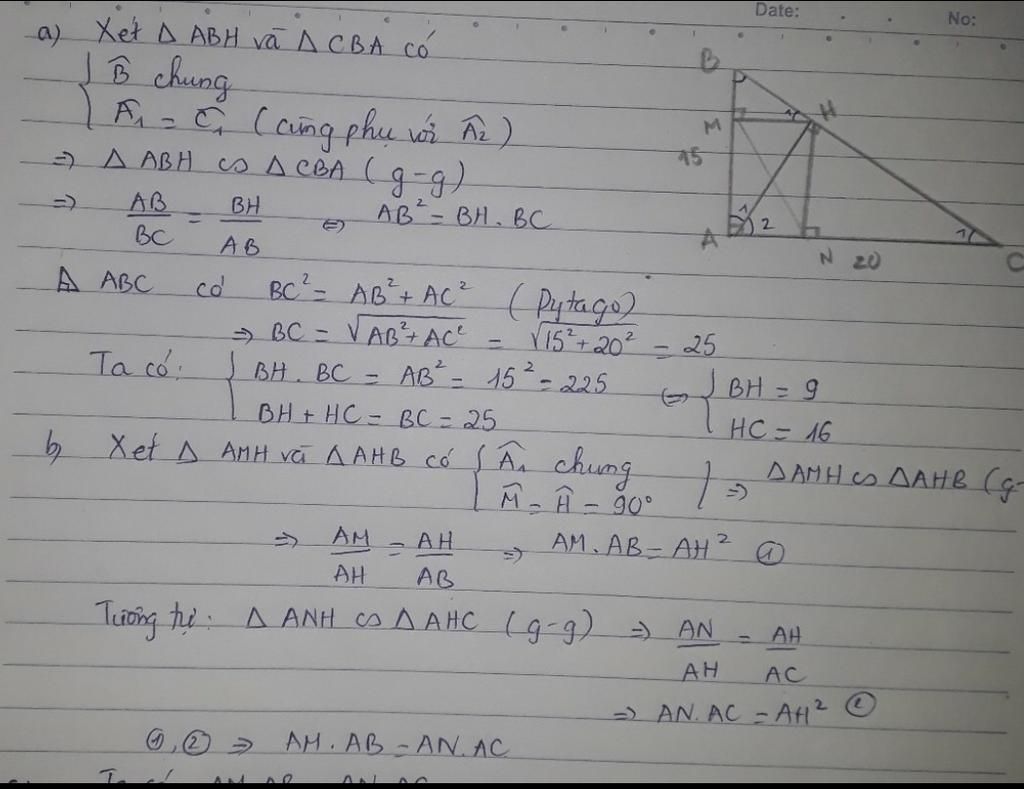 Date: No:
a) Xét Δ ABH và Δ CBA có
B̂ chung
Â₁ = Ĉ₁ (cùng phụ với Â₂)
⇒ Δ ABH ∽ Δ CBA (g-g)
⇒ AB/BC = BH/AB ⇔ AB² = BH.BC
B
H
M
1
15
1
2
A
N
20
1
C
Δ ABC có BC² = AB² + AC² (Pytago)
⇒ BC = √(AB²+AC²) = √(15²+20²) = 25
Ta có: { BH.BC = AB² = 15² = 225 ⇔ { BH = 9
BH + HC = BC = 25 HC = 16
b) Xét Δ AMH và Δ AHB có { Â₁ chung } ⇒ ΔAMH ∽ ΔAHB (g-
M̂ = Ĥ = 90°
⇒ AM/AH = AH/AB ⇒ AM.AB = AH² ①
Tương tự: Δ ANH ∽ Δ AHC (g-g) ⇒ AN/AH = AH/AC
⇒ AN.AC = AH² ②
①,② ⇒ AM.AB = AN.AC
Ta có AM.AB = AN.AC